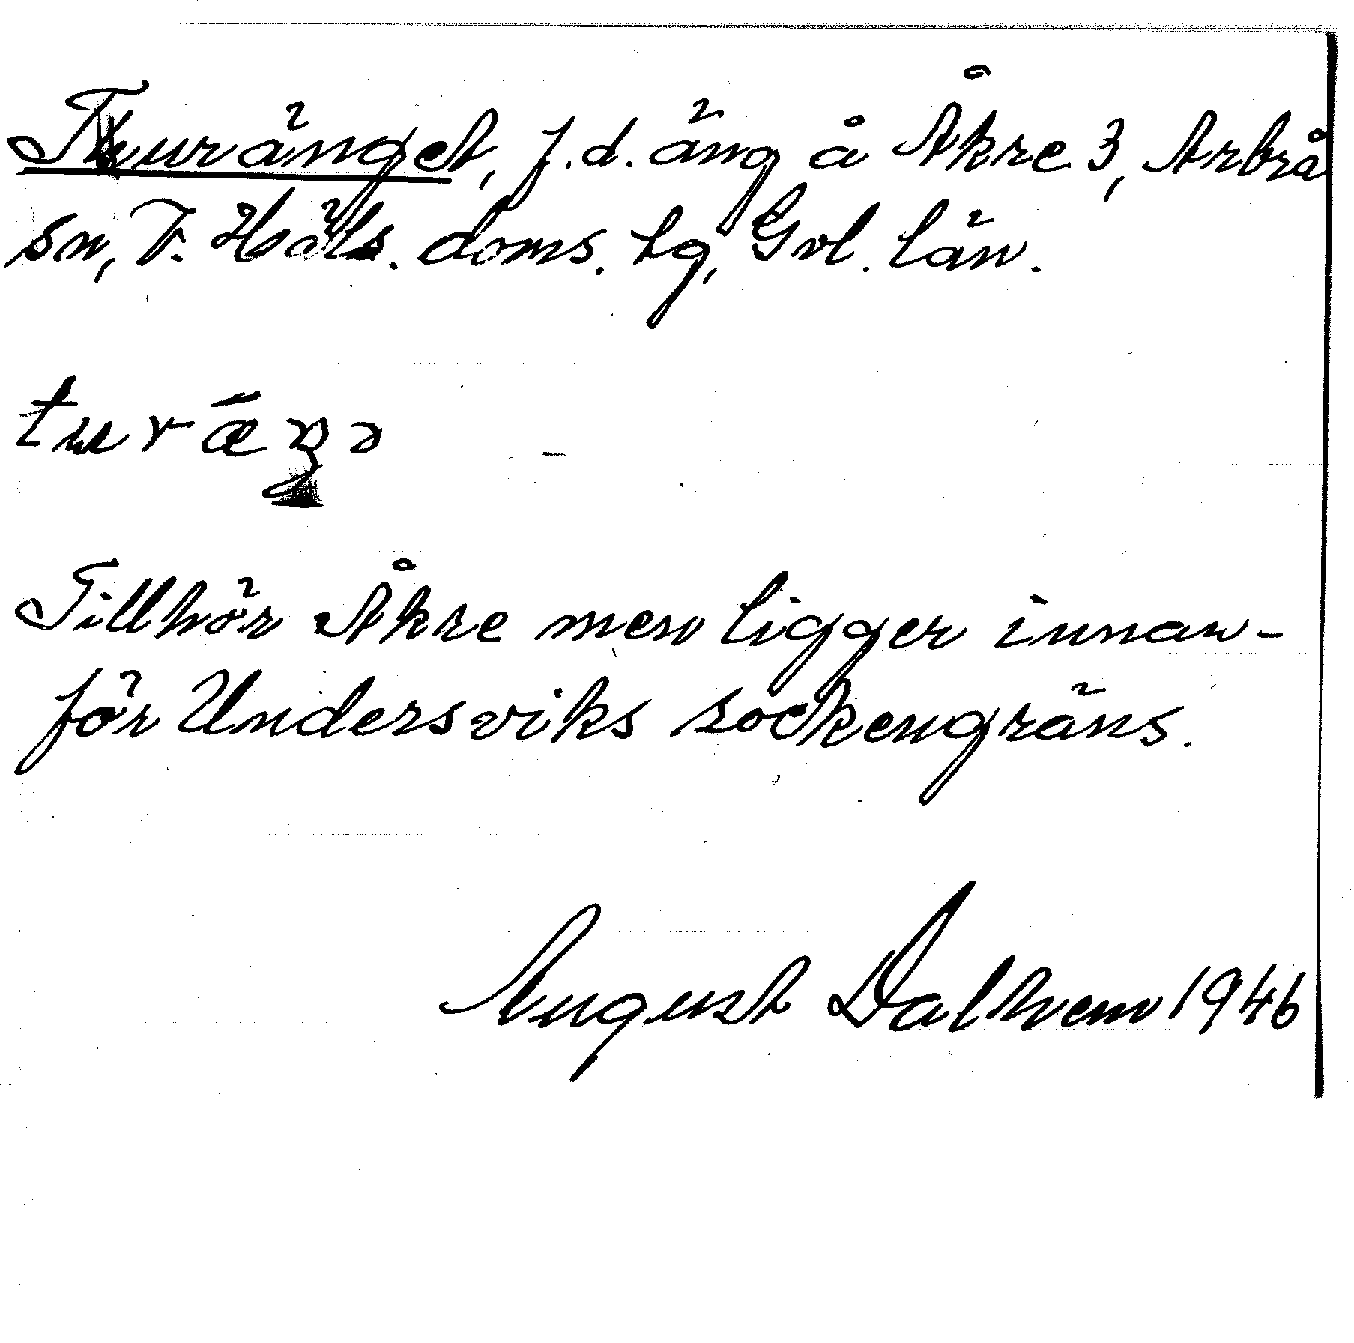 Turänget, f.d. äng å Åkre 3, Arbrå
sn, V. Häls. doms. lg, Gvl. län.
turæŋə
Tillhör Åkre men ligger innan-
för Undersviks sockengräns.
August Dalhem 1946